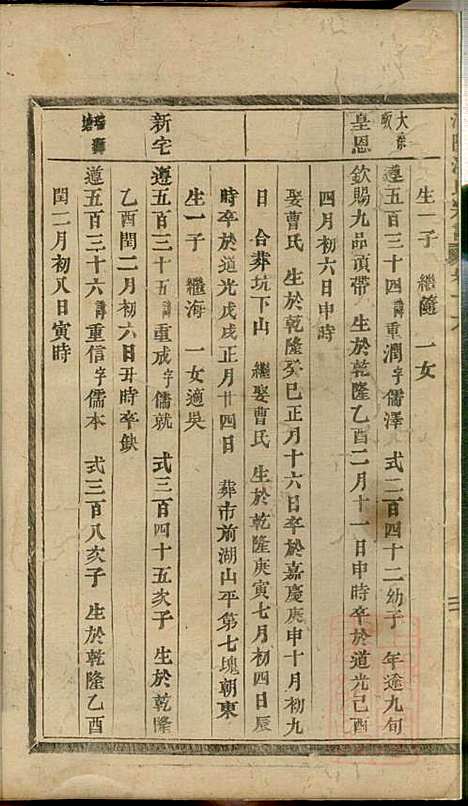 生一子 繼隨 一女
大宗
遵五百三十四諱重潤字儒澤 式二百四十二幼子 年逾九旬
皇恩
欽賜九品頂帶 生於乾隆乙酉二月十一日申時卒於道光己酉
四月初六日申時
娶曹氏 生於乾隆癸巳正月十六日卒於嘉慶庚申十月初九
日 合葬坑下山 繼娶曹氏 生於乾隆庚寅七月初四日辰
時卒於道光戊戌正月廿四日 葬市前湖山平第七塊朝東
生一子 繼海 一女適吳
新宅
遵五百三十五諱重成字儒就 式三百四十五次子 生於乾隆
乙酉閏二月初六日丑時卒缺
遵五百三十六諱重信字儒本 式三百八次子 生於乾隆乙酉
閏二月初八日寅時